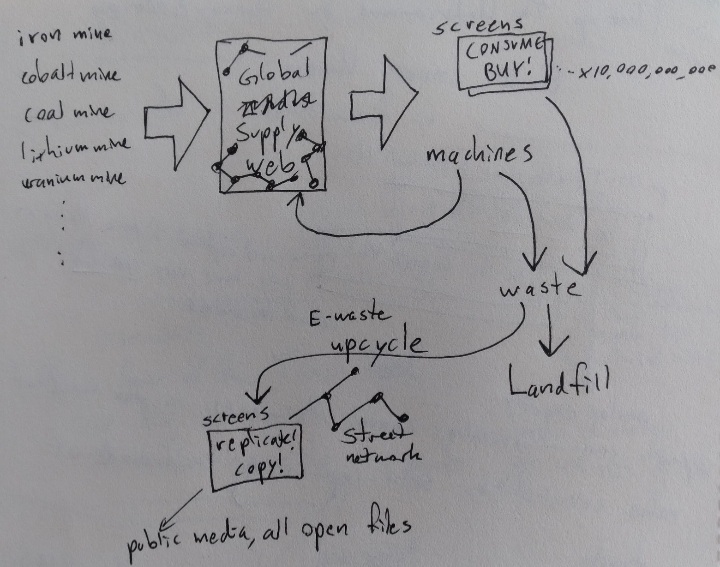 iron mine
cobalt mine
coal mine
lithium mine
uranium mine
Global
Supply
Web
screens
CONSUME
BUY!
x10,000,000,000
machines
waste
Landfill
E-waste
upcycle
screens
replicate!
copy!
street
network
public media, all open files